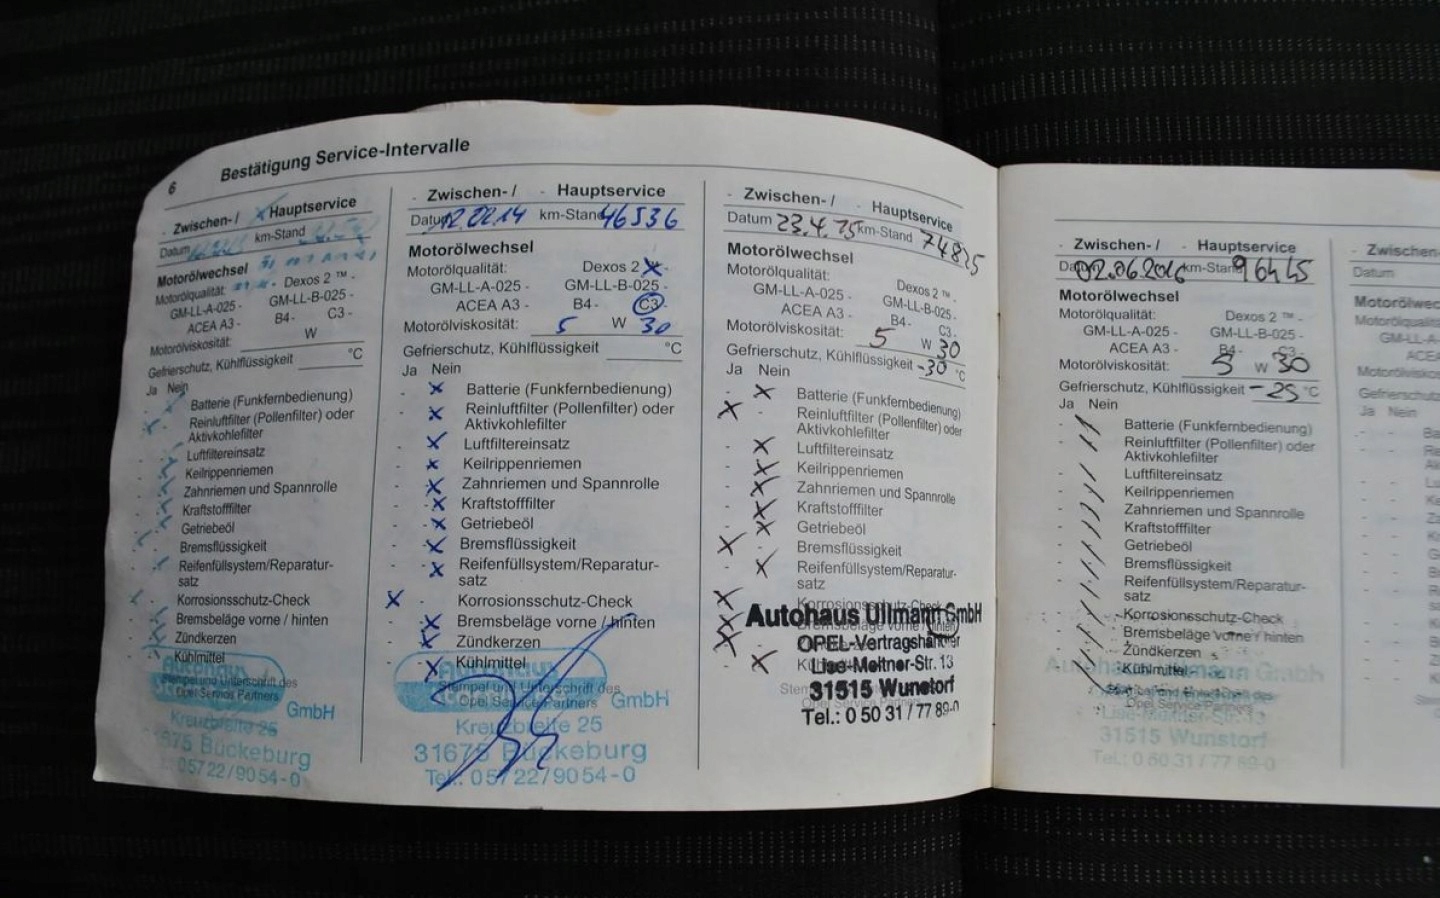 6 Bestätigung Service-Intervalle
Zwischen- / Hauptservice
Datum km-Stand
Motorölwechsel
Motorölqualität: Dexos 2 ™ -
GM-LL-A-025 -
ACEA A3 - B4 - C3 -
Motorölviskosität: W
Gefrierschutz, Kühlflüssigkeit °C
Ja Nein
Batterie (Funkfernbedienung)
Reinluftfilter (Pollenfilter) oder
Aktivkohlefilter
Luftfiltereinsatz
Keilrippenriemen
Zahnriemen und Spannrolle
Kraftstofffilter
Getriebeöl
Bremsflüssigkeit
Reifenfüllsystem/Reparatur-
satz
Korrosionsschutz-Check
Bremsbeläge vorne / hinten
Zündkerzen
Kühlmittel
Autohaus
Stempel und Unterschrift des
Opel Service Partners
GmbH
Kreuzbreite 25
675 Bückeburg
05722/9054-0
- Zwischen- / - Hauptservice
Datum 12.02.14 km-Stand 46536
Motorölwechsel
Motorölqualität: Dexos 2 -
GM-LL-A-025 - GM-LL-B-025 -
ACEA A3 - B4 - C3
Motorölviskosität: 5 W 30
Gefrierschutz, Kühlflüssigkeit °C
Ja Nein
Batterie (Funkfernbedienung)
Reinluftfilter (Pollenfilter) oder
Aktivkohlefilter
Luftfiltereinsatz
Keilrippenriemen
Zahnriemen und Spannrolle
Kraftstofffilter
Getriebeöl
Bremsflüssigkeit
Reifenfüllsystem/Reparatur-
satz
Korrosionsschutz-Check
Bremsbeläge vorne / hinten
Zündkerzen
Kühlmittel
Autohaus
Stempel und Unterschrift des
Opel Service Partners
GmbH
Kreuzbreite 25
31675 Bückeburg
Tel.: 05722/9054-0
- Zwischen- / - Hauptservice
Datum 23.4.15 km-Stand
Motorölwechsel
Motorölqualität: Dexos 2 ™ -
GM-LL-A-025 - GM-LL-B-025 -
ACEA A3 - B4 - C3 -
Motorölviskosität: 5 W 30
Gefrierschutz, Kühlflüssigkeit -30 °C
Ja Nein
Batterie (Funkfernbedienung)
Reinluftfilter (Pollenfilter) oder
Aktivkohlefilter
Luftfiltereinsatz
Keilrippenriemen
Zahnriemen und Spannrolle
Kraftstofffilter
Getriebeöl
Bremsflüssigkeit
Reifenfüllsystem/Reparatur-
satz
Korrosionsschutz-Check
Autohaus Ullmann GmbH
OPEL-Vertragshändler
Lise-Meitner-Str. 13
31515 Wunstorf
Tel.: 0 50 31 / 77 89-0
- Zwischen- / - Hauptservice
Datum 02.06.2016 km-Stand 96445
Motorölwechsel
Motorölqualität: Dexos 2 ™ -
GM-LL-A-025 - GM-LL-B-025 -
ACEA A3 - B4 - C3 -
Motorölviskosität: 5 W 30
Gefrierschutz, Kühlflüssigkeit -25 °C
Ja Nein
Batterie (Funkfernbedienung)
Reinluftfilter (Pollenfilter) oder
Aktivkohlefilter
Luftfiltereinsatz
Keilrippenriemen
Zahnriemen und Spannrolle
Kraftstofffilter
Getriebeöl
Bremsflüssigkeit
Reifenfüllsystem/Reparatur-
satz
Korrosionsschutz-Check
Bremsbeläge vorne / hinten
Zündkerzen
Kühlmittel
Autohaus Ullmann GmbH
Opel Service Partners
Lise-Meitner-Str. 13
31515 Wunstorf
Tel.: 0 50 31 / 77 89-0
- Zwischen-
Datum
Ja Nein